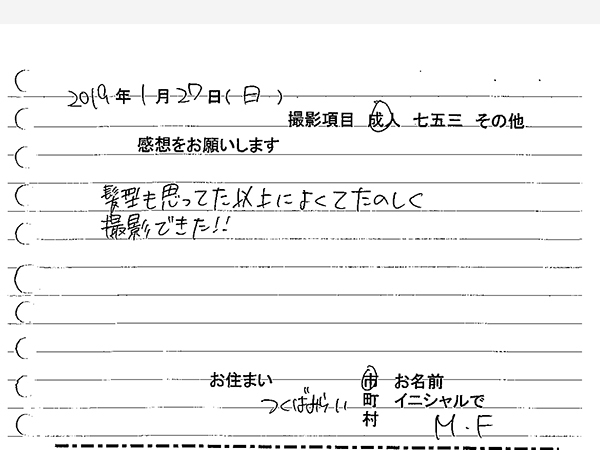 2019年1月27日(日)
撮影項目 成人 七五三 その他
感想をお願いします
髪型も思ってた以上によくてたのしく
撮影できた!!
お住まい 市 お名前
つくばみらい 町 イニシャルで
村 M.F